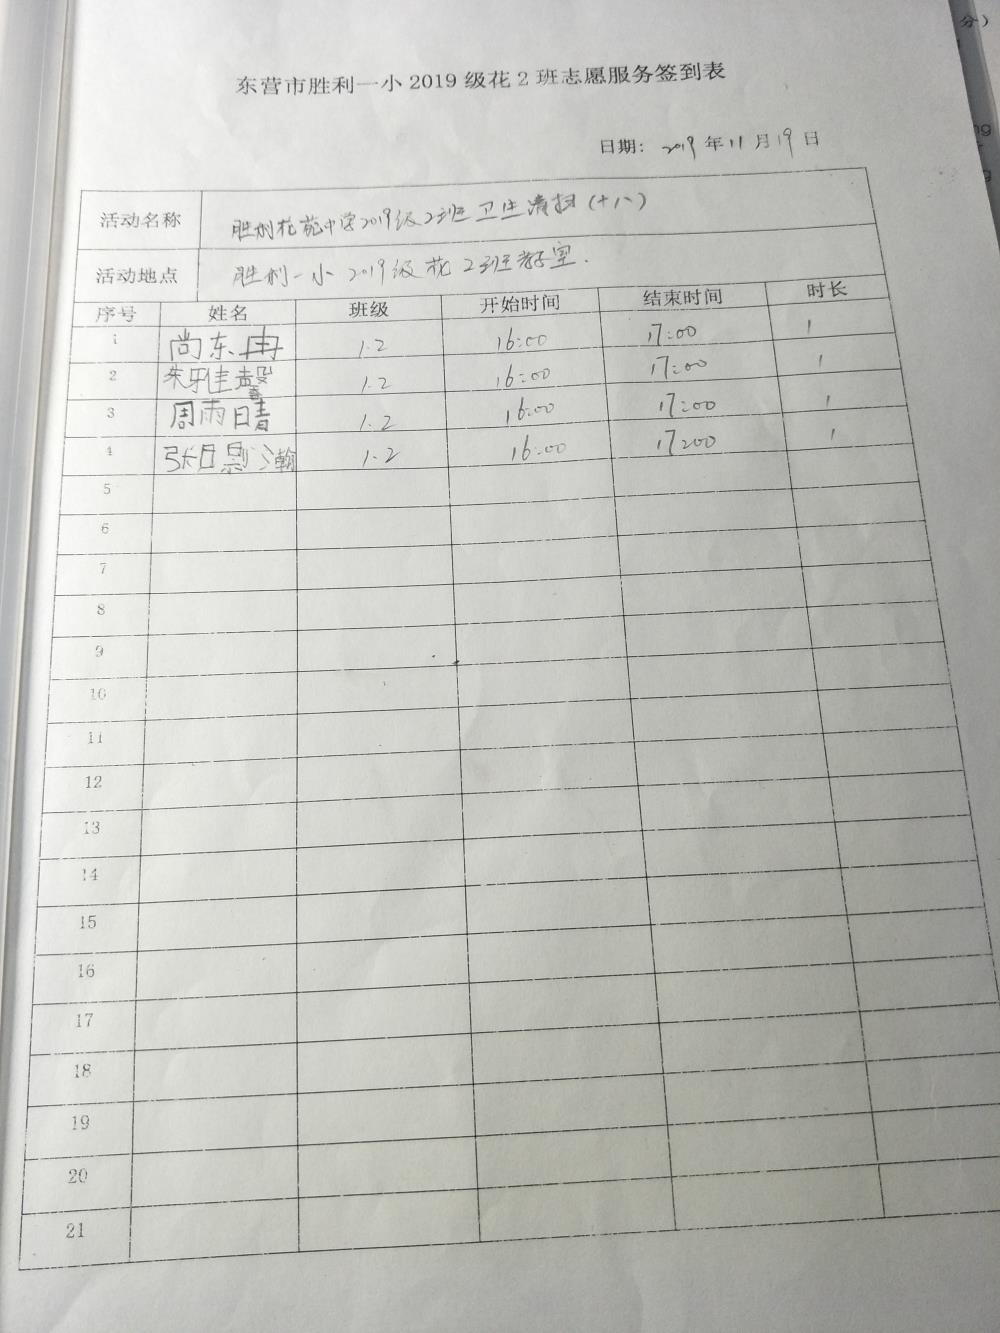 东营市胜利一小2019级花2班志愿服务签到表
日期: 2019年11月19日
活动名称 胜利花苑中学2019级2班卫生清扫(十八)
活动地点 胜利一小2019级花2班教室.
序号 姓名 班级 开始时间 结束时间 时长
1 尚东冉 1.2 16:00 17:00 1
2 朱雅馨 1.2 16:00 17:00 1
3 周雨晴 1.2 16:00 17:00 1
4 张影瀚 1.2 16:00 17:00 1
5
6
7
8
9
10
11
12
13
14
15
16
17
18
19
20
21
分)
ng